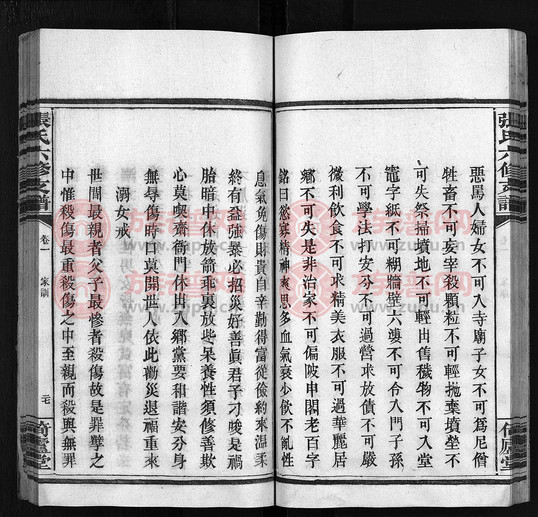 惡罵人婦女不可入寺廟子女不可為尼僧
牲畜不可妄宰殺顆粒不可輕拋棄墳塋不
可失祭掃墳地不可輕出售穢物不可入堂
竈字紙不可糊牆壁六婆不可令入門子孫
不可學法打安分不可過營求放債不可嚴
微利飲食不可求精美衣服不可過華麗居
鄉不可失是非治家不可偏陂申閣老百字
銘曰慾寡精神爽思多血氣衰少飲不亂性
息氣免傷財貴自辛勤得富從儉約來溫柔
終有益強暴必招災好善眞君子刁唆是禍
胎暗中休放箭乖裏放些呆養性須修善欺
心莫喫齋衙門休出入鄉黨要和諧安分身
無辱傷時口莫開世人依此勸災退福重來
溺女戒
世間最親者父子最慘者殺傷故是罪孽之
中惟殺傷最重殺傷之中至親而殺與無罪
張氏六修支譜
卷一
家訓
張氏六修支譜